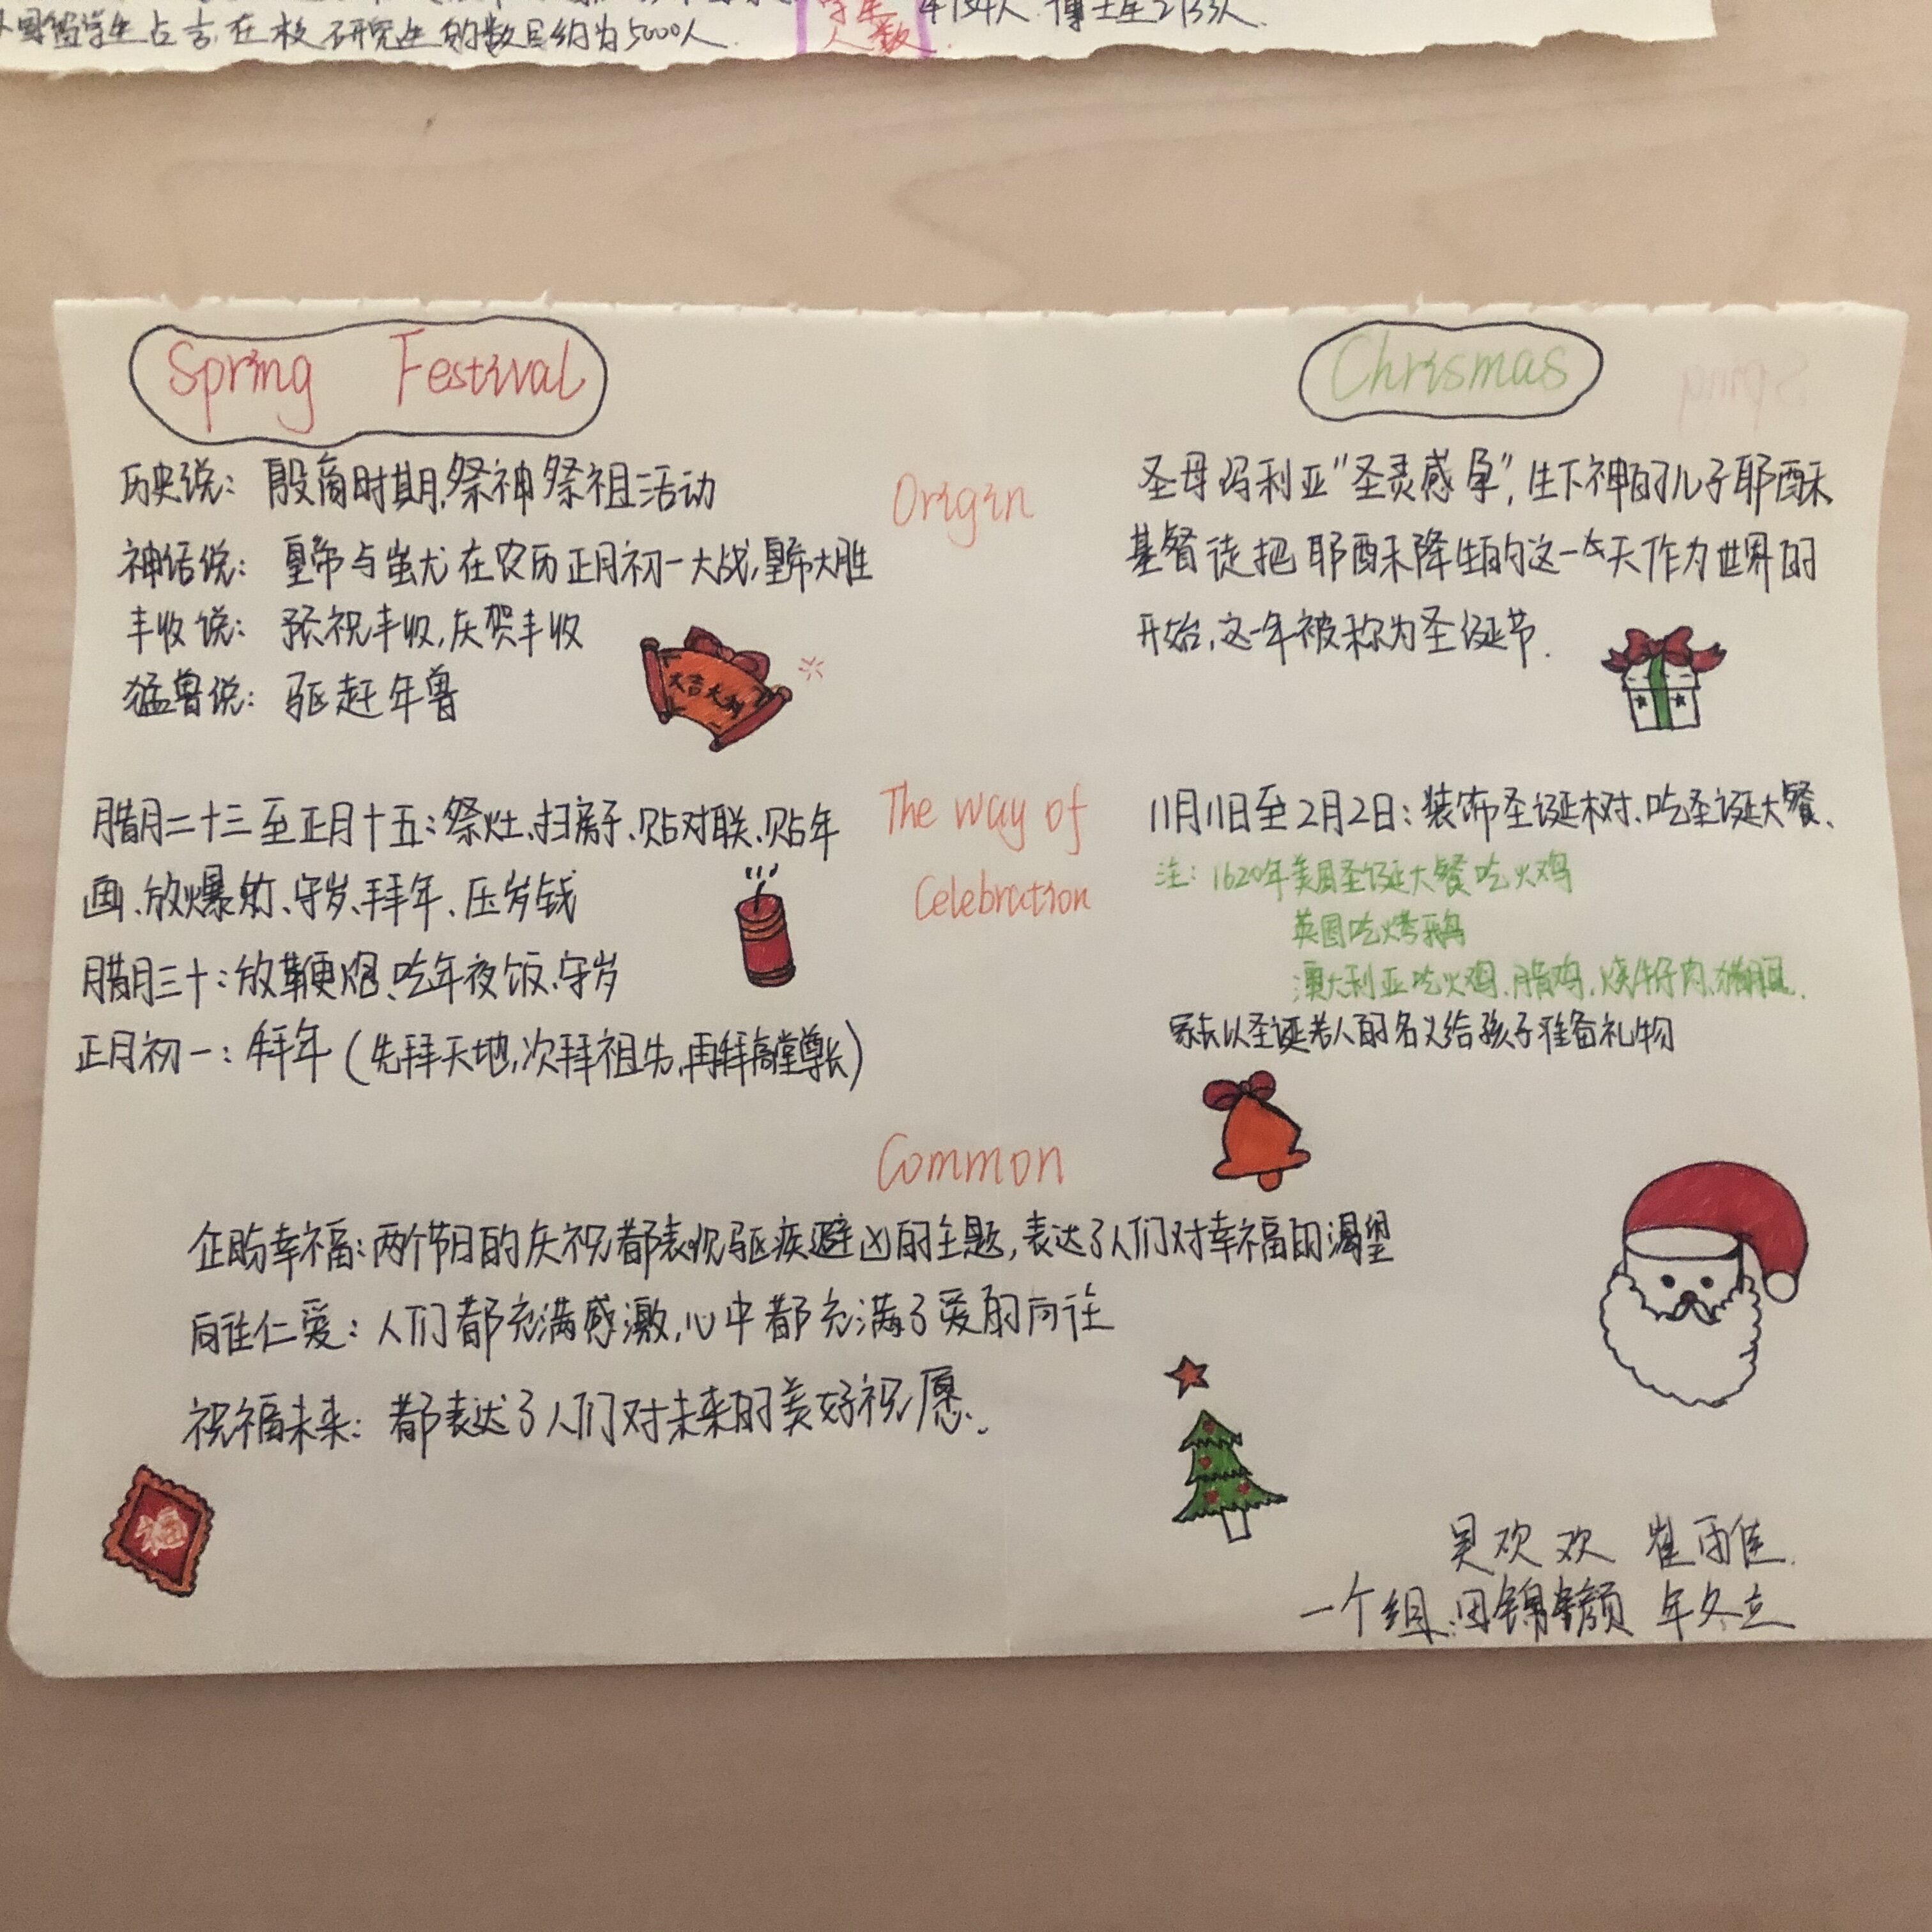 外国留学生占去在校研究生的数目约为5000人.
学生
人数
4134人.博士生2133人.
Spring Festival
Chrismas
历史说: 殷商时期,祭神祭祖活动
神话说: 皇帝与蚩尤在农历正月初一大战,皇帝大胜
丰收说: 预祝丰收,庆贺丰收
猛兽说: 驱赶年兽
大吉大利
Origin
圣母玛利亚"圣灵感孕",生下神的儿子耶酥
基督徒把耶酥降生的这一天作为世界的
开始,这一年被称为圣诞节.
腊月二十三至正月十五:祭灶、扫房子、贴对联、贴年
画、放爆竹、守岁、拜年、压岁钱
腊月三十:放鞭炮、吃年夜饭、守岁
正月初一:拜年(先拜天地,次拜祖先,再拜高堂尊长)
The way of
Celebration
11月11日至2月2日:装饰圣诞树、吃圣诞大餐、
注: 1620年美国圣诞大餐吃火鸡
英国吃烤鹅
澳大利亚吃火鸡、腊鸡、烧牛仔肉、猪腿.
家长以圣诞老人的名义给孩子准备礼物
Common
企盼幸福:两个节日的庆祝都表现驱疾避凶的主题,表达了人们对幸福的渴望
向往仁爱:人们都充满感激,心中都充满了爱的向往
祝福未来: 都表达了人们对未来的美好祝愿.
吴欢欢 崔雨佳.
一个组.田锦颜 年冬立